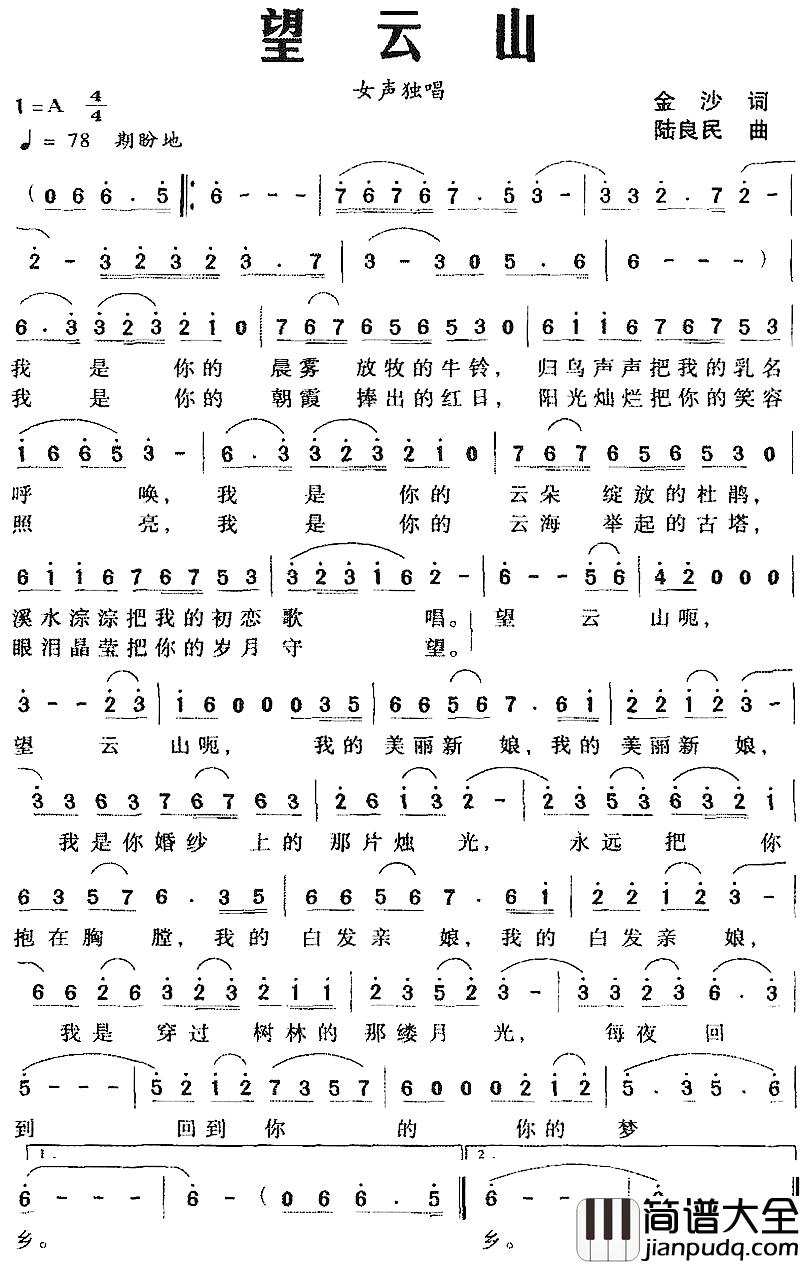 望云山
女声独唱
1=A 4/4
金沙 词
♩= 78 期盼地
陆良民 曲
(0 6 6 . 5 6 - - - 7 6 7 6 7 . 5 3 - 3 3 2 . 7 2 -
2 - 3 2 3 2 3 . 7 3 - 3 0 5 . 6 6 - - - )
6 . 3 3 2 3 2 1 0 7 6 7 6 5 6 5 3 0 6 1 1 6 7 6 7 5 3
我 是 你的 晨雾 放牧的牛铃, 归鸟声声把我的乳名
我 是 你的 朝霞 捧出的红日, 阳光灿烂把你的笑容
1 6 6 5 3 - 6 . 3 3 2 3 2 1 0 7 6 7 6 5 6 5 3 0
呼 唤, 我 是 你的 云朵 绽放的杜鹃,
照 亮, 我 是 你的 云海 举起的古塔,
6 1 1 6 7 6 7 5 3 3 2 3 1 6 2 - 6 - - 5 6 4 2 0 0 0
溪水淙淙把我的初恋歌 唱。 望 云 山呃,
眼泪晶莹把你的岁月守 望。
3 - - 2 3 1 6 0 0 0 3 5 6 6 5 6 7 . 6 1 2 2 1 2 3 -
望 云 山呃, 我的 美丽新 娘,我的 美丽新 娘,
3 3 6 3 7 6 7 6 3 2 6 1 3 2 - 2 3 5 3 6 3 2 1
我是你婚纱 上的 那片烛 光, 永远 把 你
6 3 5 7 6 . 3 5 6 6 5 6 7 . 6 1 2 2 1 2 3 -
抱在胸 膛,我的 白发亲 娘,我的 白发亲 娘,
6 6 2 6 3 2 3 2 1 1 2 3 5 2 3 - 3 3 2 3 6 . 3
我是 穿过 树林的 那缕月 光, 每夜 回
5 - - - 5 2 1 2 7 3 5 7 6 0 0 0 2 1 2 5 . 3 5 . 6
到 回到 你 的 你的 梦
1. 2.
6 - - - 6 - (0 6 6 . 5 6 - - - 6
乡。 乡。
简谱大全
jianpudq.com